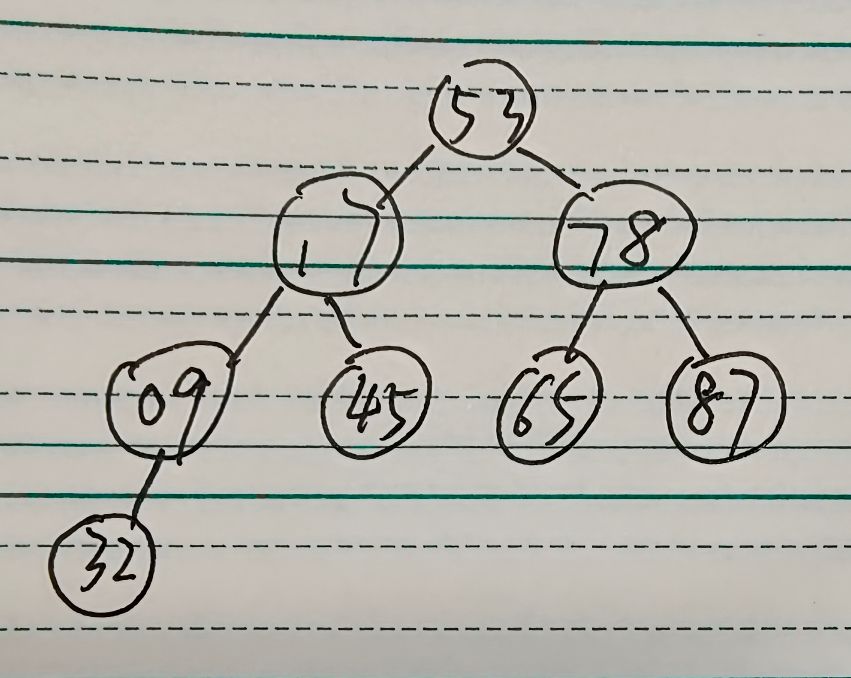 53
17 78
09 45 65 87
32